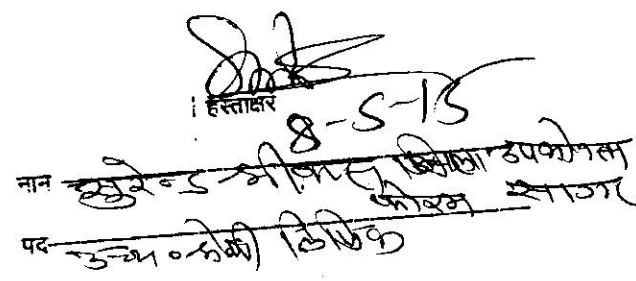 हस्ताक्षर
8-5-15
नाम सुरेन्द्र श्रीवास्तव जिला उपभोक्ता
फोरम सागर
पद उच्च श्रेणी लिपिक